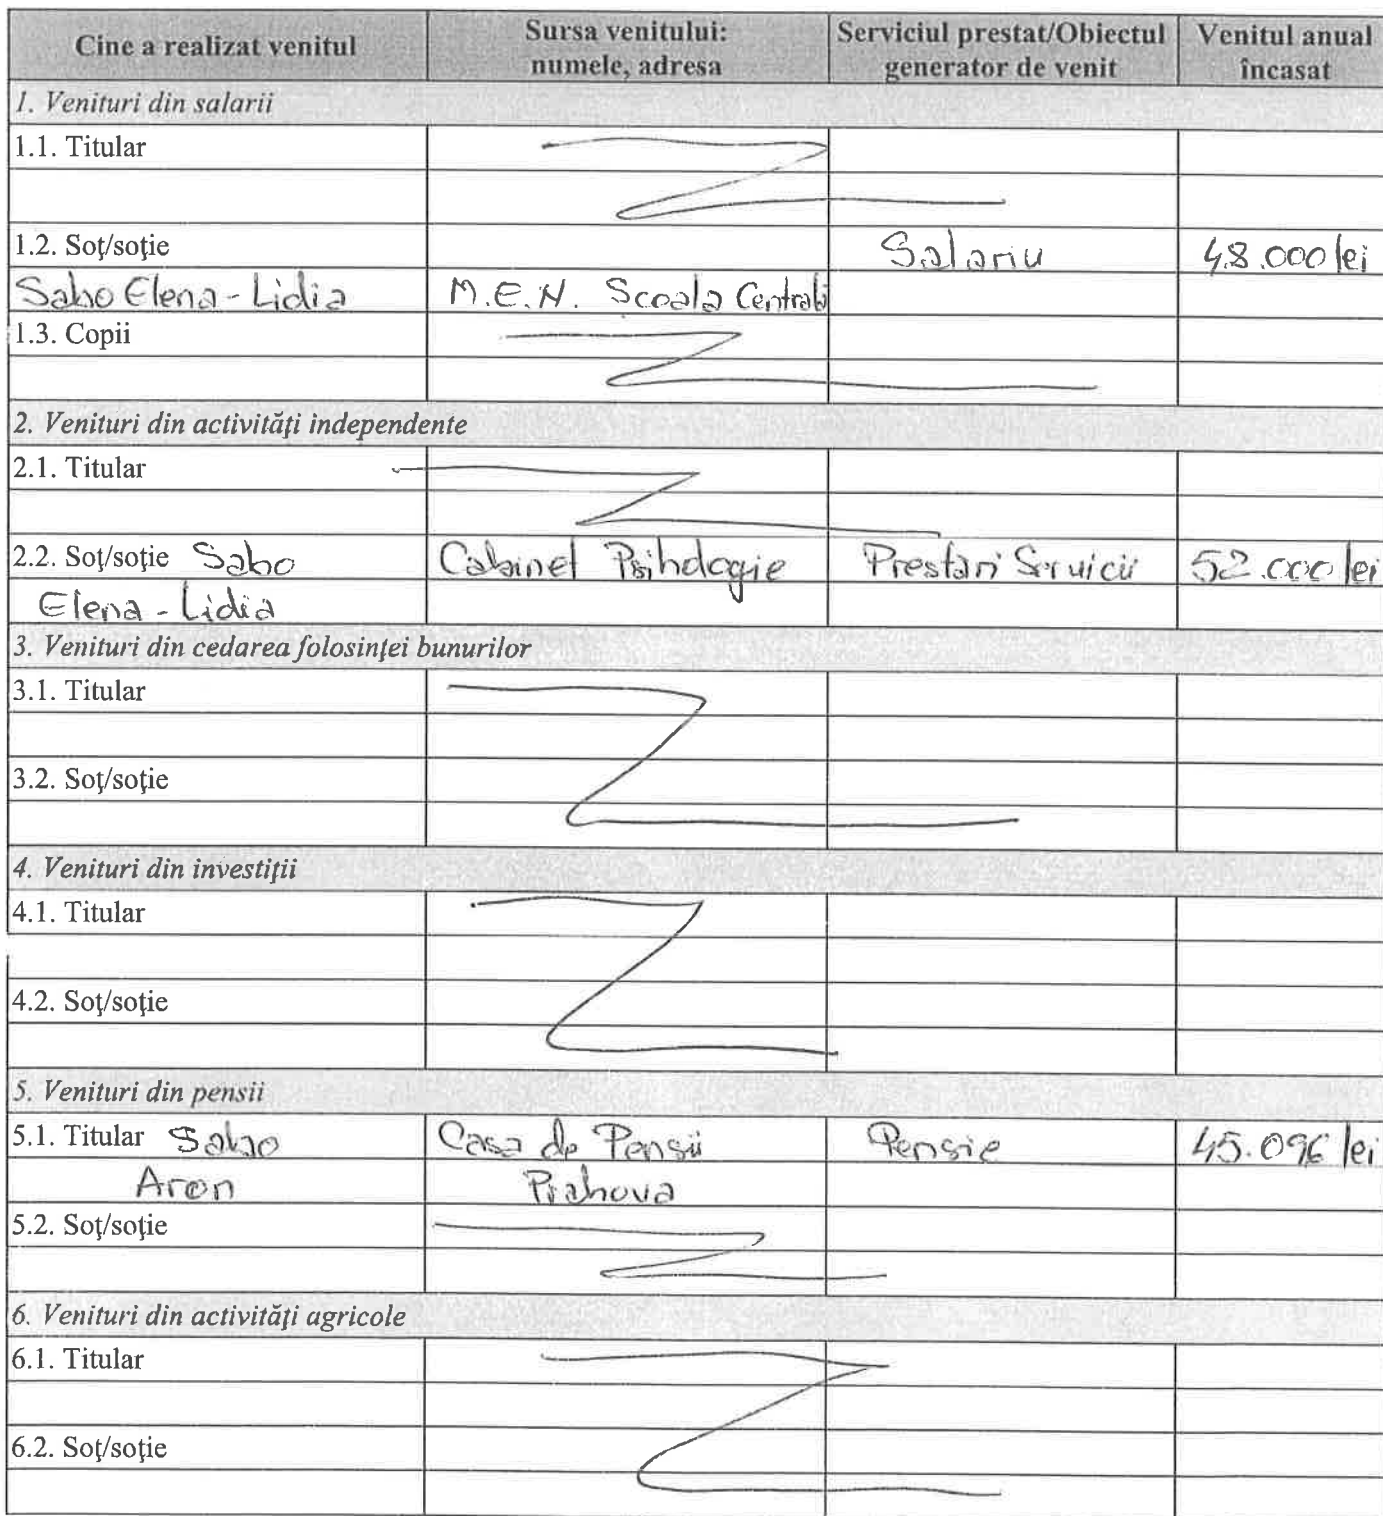 Cine a realizat venitul | Sursa venitului: numele, adresa | Serviciul prestat/Obiectul generator de venit | Venitul anual încasat
1. Venituri din salarii
1.1. Titular
1.2. Soţ/soţie | Salariu | 48.000 lei
Sabo Elena-Lidia | M.E.N. Şcoala Centrală
1.3. Copii
2. Venituri din activităţi independente
2.1. Titular
2.2. Soţ/soţie Sabo | Cabinet Psihologie | Prestari Servicii | 52.000 lei
Elena-Lidia
3. Venituri din cedarea folosinţei bunurilor
3.1. Titular
3.2. Soţ/soţie
4. Venituri din investiţii
4.1. Titular
4.2. Soţ/soţie
5. Venituri din pensii
5.1. Titular Sabo | Casa de Pensii | Pensie | 45.096 lei
Aron | Prahova
5.2. Soţ/soţie
6. Venituri din activităţi agricole
6.1. Titular
6.2. Soţ/soţie